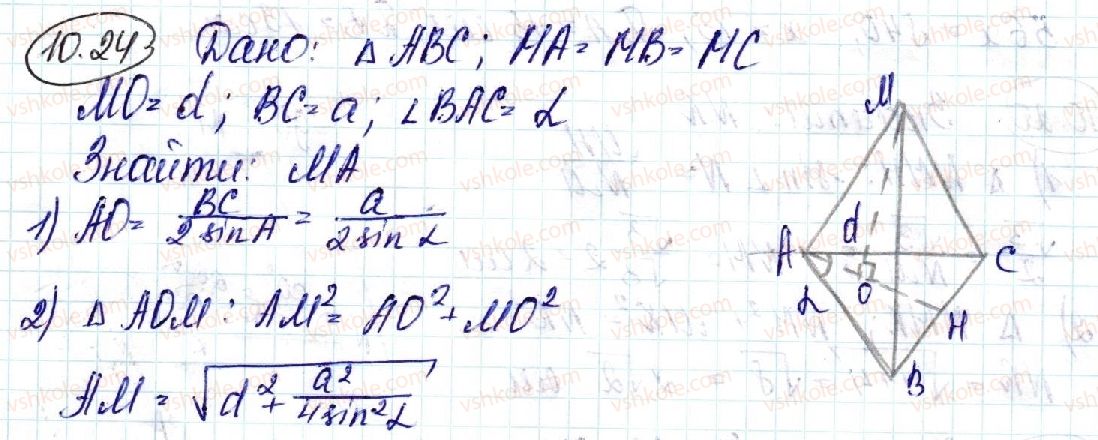 10.24 Дано: △ ABC; MA = MB = MC
MO = d; BC = a; ∠BAC = α
Знайти: MA
1) AO = BC / 2 sin A = a / 2 sin α
2) △ AOM: AM² = AO² + MO²
AM = √(d² + a² / 4 sin² α)
M
A
d
C
α
O
H
B